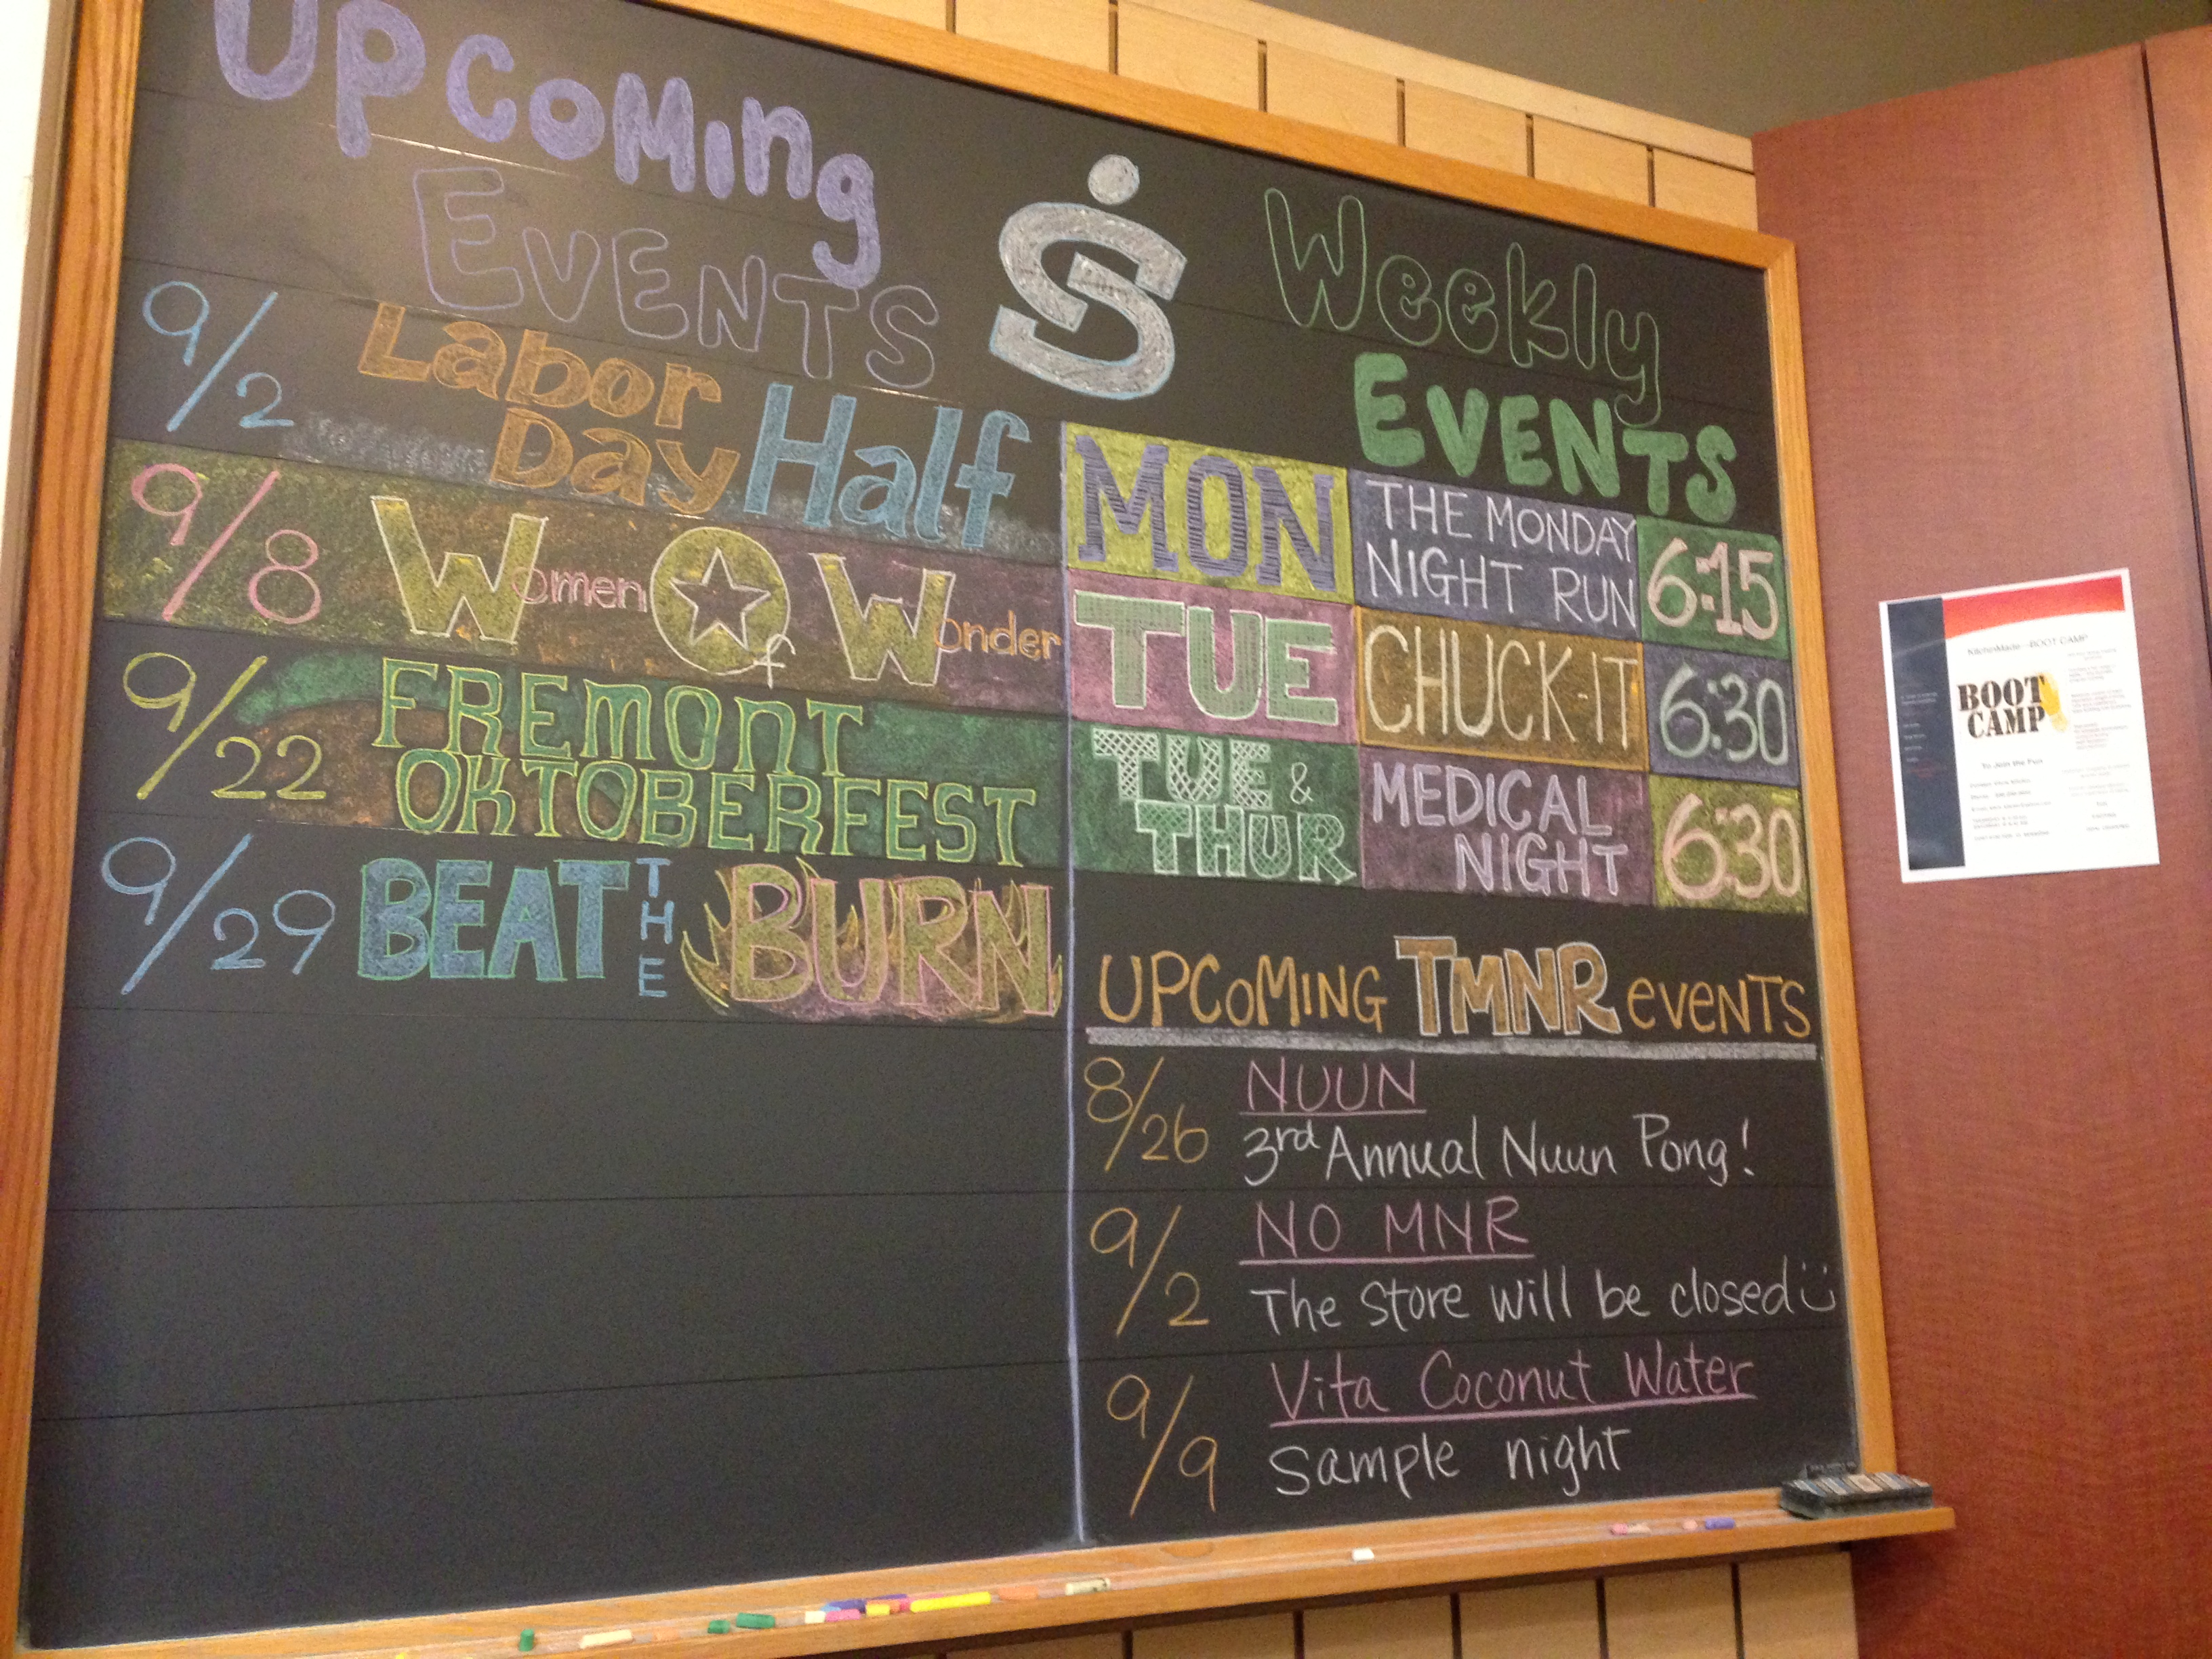 Upcoming
Events
9/2 Labor Day Half
9/8 Women Of Wonder
9/22 FREMONT
OKTOBERFEST
9/29 BEAT THE BURN
Weekly
Events
MON THE MONDAY NIGHT RUN 6:15
TUE CHUCK-IT 6:30
TUE & THUR MEDICAL NIGHT 6:30
UPCOMING TMNR events
8/26 NUUN
3rd Annual Nuun Pong!
9/2 NO MNR
The Store will be closed
9/9 Vita Coconut Water
Sample night
BOOT CAMP
BOOT
CAMP
To Join the Fun